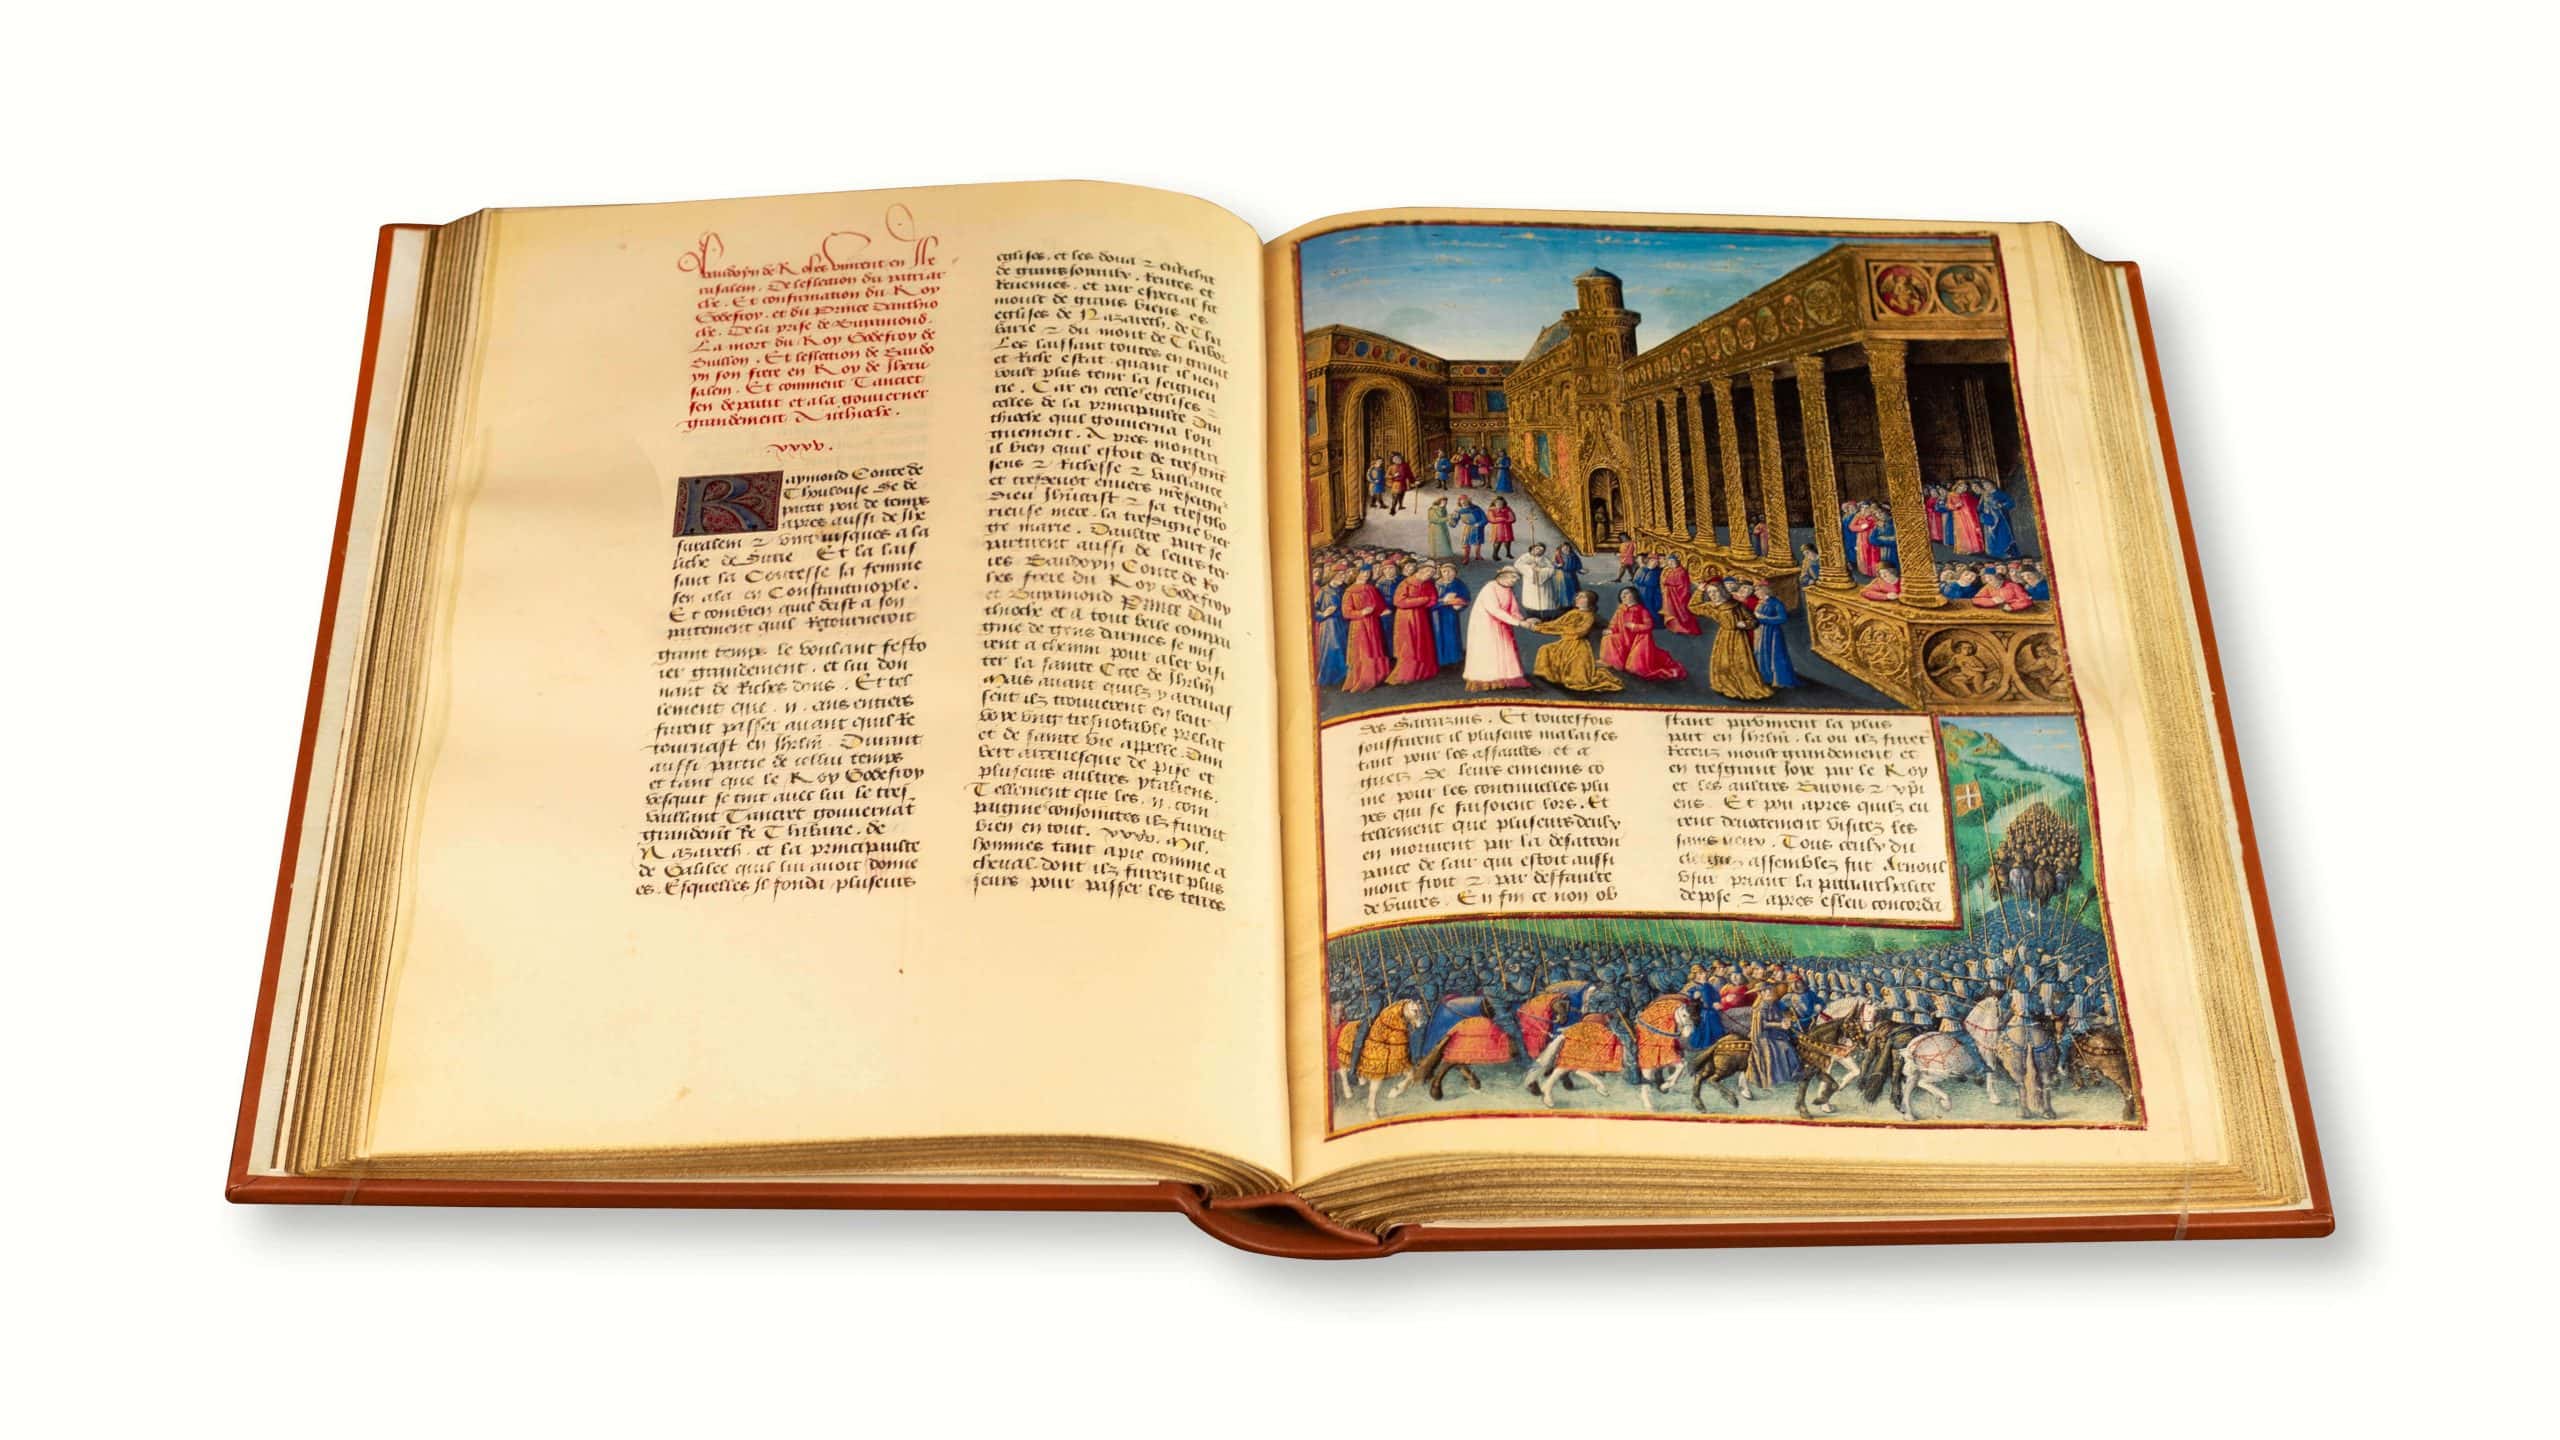 Baudoyn de Rohes vinrent en Jhe
rusalem. De leslection du patriar
che. Et confirmation du Roy
Godefroy. et du Prince Danthio
che. De la prise de Buyamond.
La mort du Roy Godefroy de
Buillon. Et leslection de Baudo
yn son frere en Roy de Jheru
salem. Et comment Tancret
sen departit et ala gouverner
grandement Anthioche.
xxxv.
Raymond Conte de
Thoulouse se de
partit pou de temps
apres aussi de Jhe
rusalem & vint jusques a la
liche de Surie Et la lais
sant la Contesse sa femme
sen ala en Constantinople.
Et combien que deist a son
partement quil Retourneroit
grant temps le voulant festo
ier grandement. et lui don
nant de Riches dons. Et tel
lement que .ii. ans entiers
furent passez avant quil Re
tournast en Jhrlm. Durant
aussi partie de cellui temps
et tant que le Roy Godefroy
vesquit se tint avec lui le tres
vaillant Tancret gouvernãt
grandemẽt Re Thabarie. de
Nazareth. et la principaulte
de Galilee quil lui avoit donne
es. Esquelles Il fonda plusieurs
eglises. et les doua & enrichit
de grans Rentes et
Revenues. et par especial fit
moult de grans biens es
eglises de Nazareth. de Tha
barie & du mont de Thabor
Les laissant toutes en grant
et Riche estat quant il nen
voult plus tenir la seigneu
rie. Car en celles eglises &
celles de la principaulte Dan
thioche quil gouverna lon
guement. Apres monstra
il bien quil estoit de tresgrãt
sens & Richesse & vaillance
et tresdevot envers
Dieu Jhucrist & sa tresglo
rieuse mere. la tresdigne vier
ge marie. Daultre part se
partirent aussi de leurs ter
res Baudoyn Conte de Ro
hes frere du Roy Godefroy
et Buyamond Prince Dan
thioche et a tout belle compai
gnie de gens darmes se mis
rent a chemin pour aler visi
ter la sainte Cite de Jhrlm
Mais avant quilz y arrivas
sent ilz trouverent en leur
voye ung tresnotable prelat
et de sainte vie appelle Dan
bert arcevesque de Pise et
plusieurs aultres ytaliens.
Tellement que les .ii. com
paignies conjoinctes ilz furent
bien en tout. xxv. Mil.
hommes tant a pie comme a
cheval dont ilz furent plus
seurs pour passer les terres
des Sarrazins. Et toutesfois
souffrirent il plusieurs malaises
tant pour les assaulx et a
guetz de leurs ennemis cõ
me pour les continuelles plu
yes qui se faisoient lors. Et
tellement que plusieurs deulx
en morurent par la destrem
pance de lair qui estoit aussi
mont froit & par deffaulte
de vivres. En fin ce non ob
stant parvinrent la plus
part en Jhrlm. la ou ilz furẽt
Receuz moult grandement et
en tresgrant Joye par le Roy
et les aultres Barons & xpi
ens. Et pou apres quilz eu
rent devotement visitez les
sains lieux. Tous ceulx du
clergie assemblez fut Arnoul
viur priant la patriarchalite
depose & apres esleu concorda